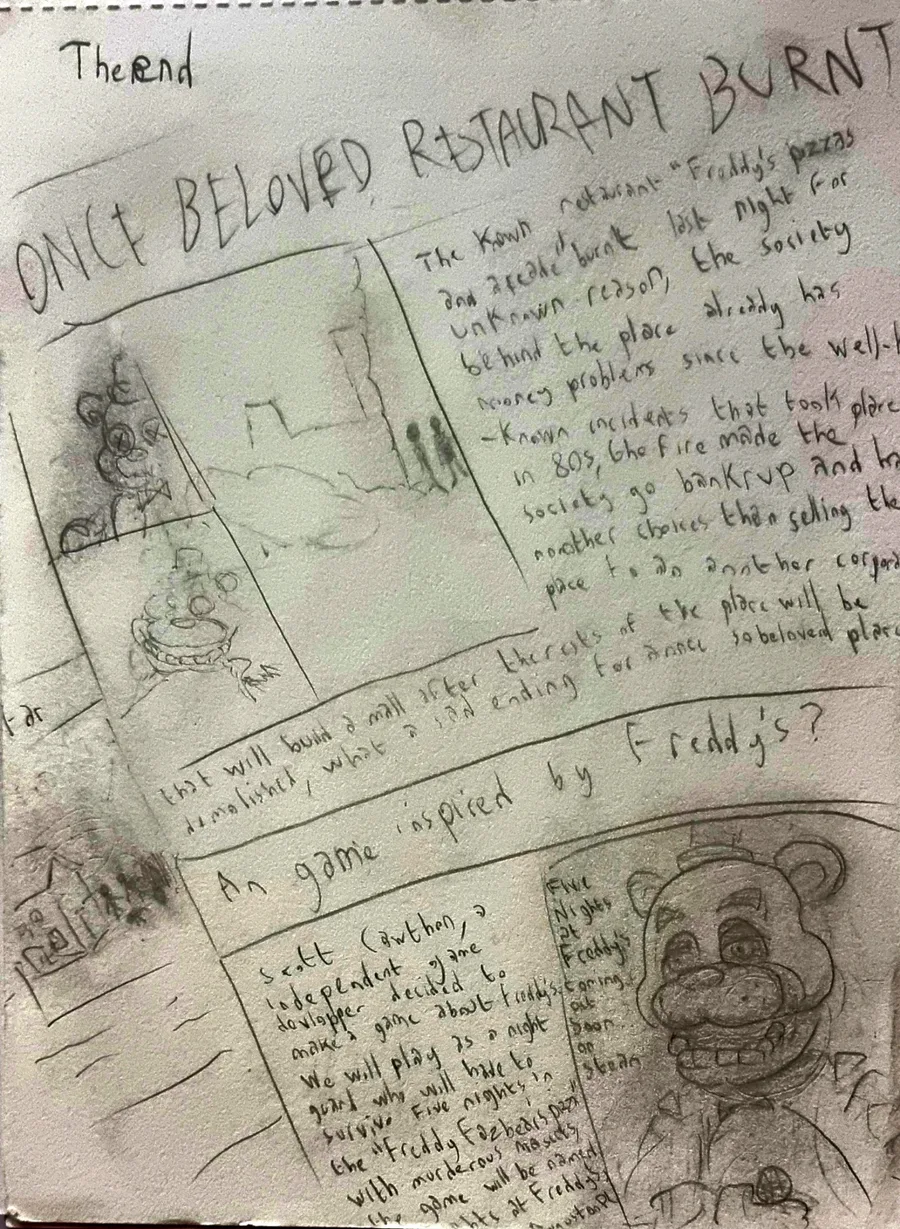 The end
ONCE BELOVED RESTAURANT BURNT
The Kown retaurant "Freddy's pizzas
and arcade" burnt last night for
unknown reason, the society
behind the place already has
money problems since the well-
-Known incidents that took place
in 80s, the fire made the
society go bankrup and ha
noother choices then selling the
place to an another corpora
that will build a mall after the rests of the place will be
demolished, what a sad ending for a once so beloved place
far
An game inspired by Freddy's?
Scott Cawthon, a
independent game
devlopper decided to
make a game about Freddy's.
We will play as a night
guard who will have to
survive five nights in
the "Freddy Fazbear's pizza"
with murderous mascots,
the game will be named
ghts at Freddy's
Five
Nights
at
Freddy's
coming
out
soon
on
steam